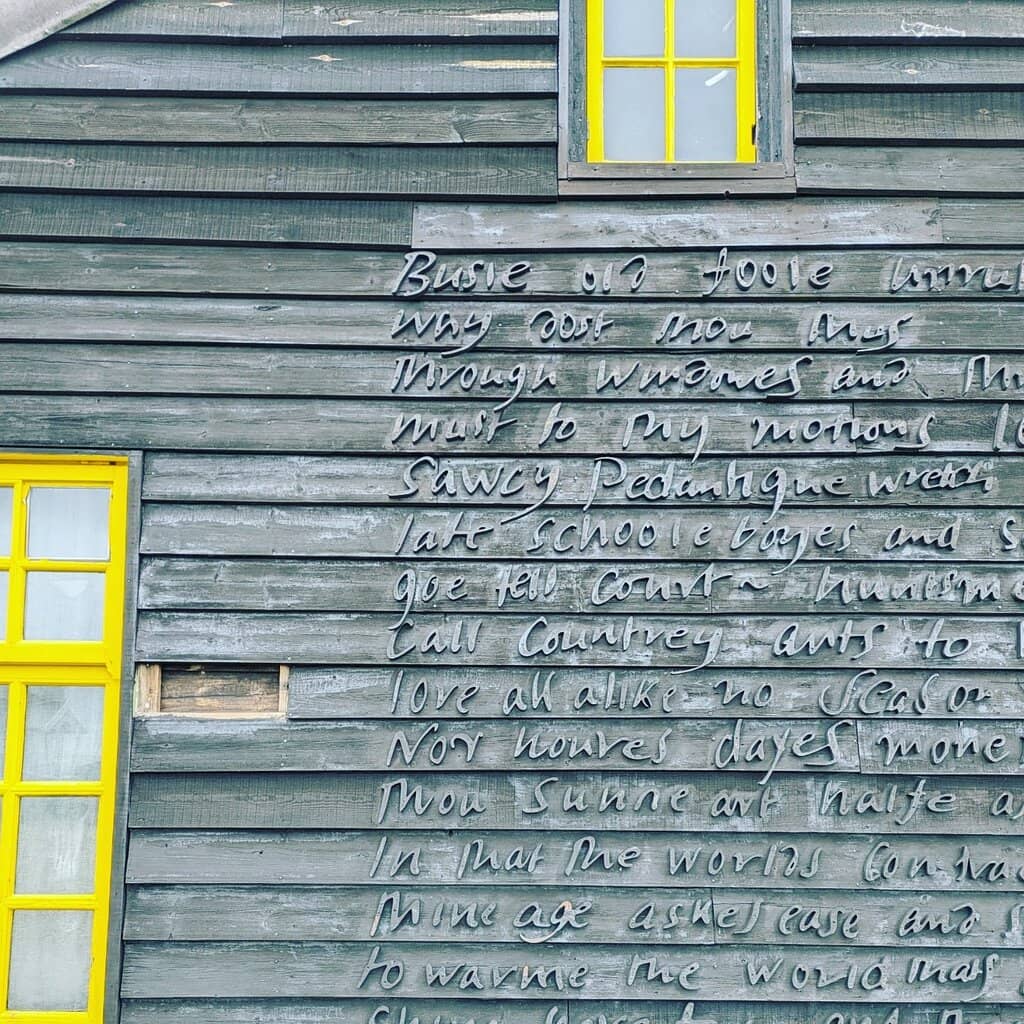 Busie old foole unrul
Why dost thou thus
Through windowes and th
must to thy motions l
Sawcy Pedantique wretch
late schoole boyes and s
goe tell Court~ huntsme
Call Countrey ants to
love all alike no Season
Nor houres dayes mone
Thou Sunne art halfe as
In that the worlds Contrac
Thine age askes ease and
to warme the world thats
Shine here to us and